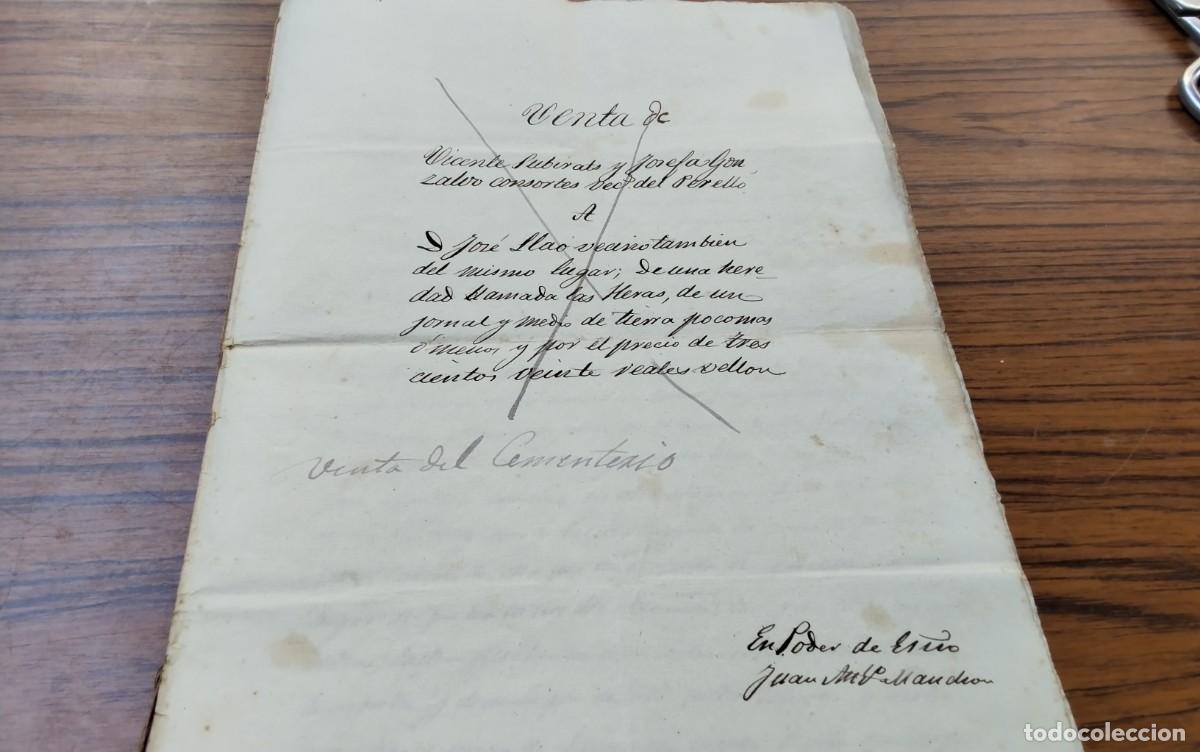 Venta de
Vicente Subirats y Josefa Gon
zalvo consortes vec.s del Perelló
A
D José Llaó vecino tambien
del mismo lugar; De una here-
dad llamada las Heras, de un
jornal y medio de tierra poco mas
ó menos y por el precio de tres
cientos veinte reales vellon
Venta del Cementerio
En Poder de Esño
Juan M.ª
todocoleccion